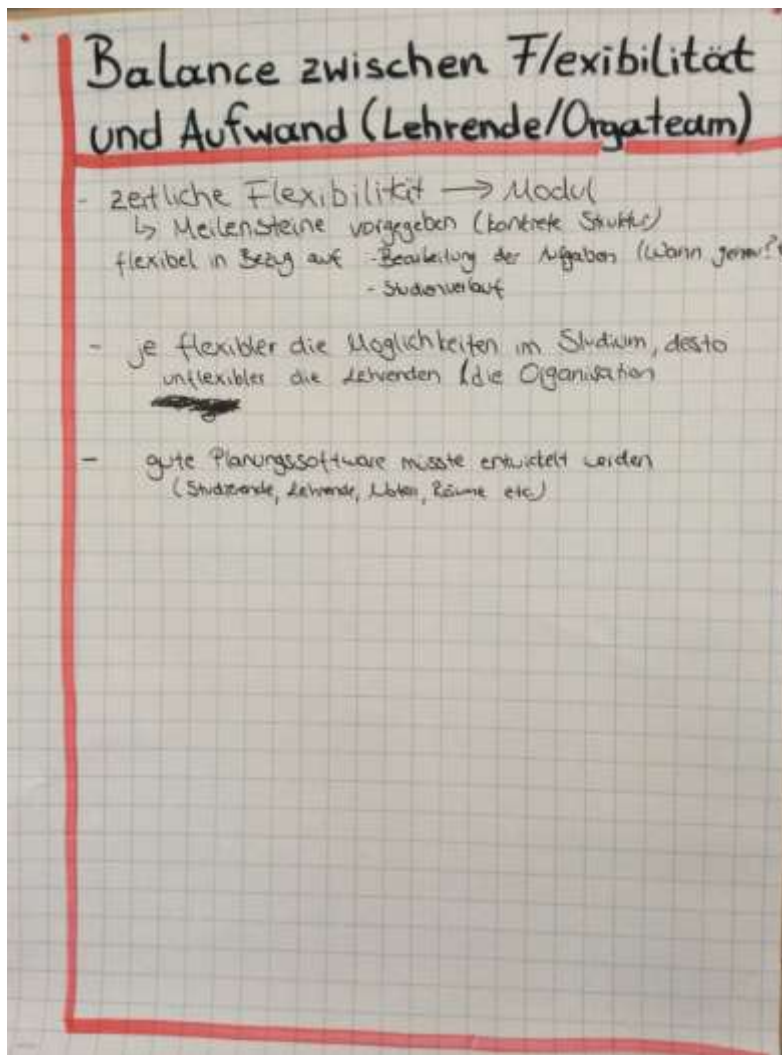 Balance zwischen Flexibilität
und Aufwand (Lehrende/Orgateam)
- zeitliche Flexibilität → Modul
↳ Meilensteine vorgegeben (konkrete Struktur)
flexibel in Bezug auf - Bearbeitung der Aufgaben (Wann genau?
- Studienverlauf
- je flexibler die Möglichkeiten im Studium, desto
unflexibler die Lehrenden / die Organisation
- gute Planungssoftware müsste entwickelt werden
(Studierende, Lehrende, Noten, Räume etc)